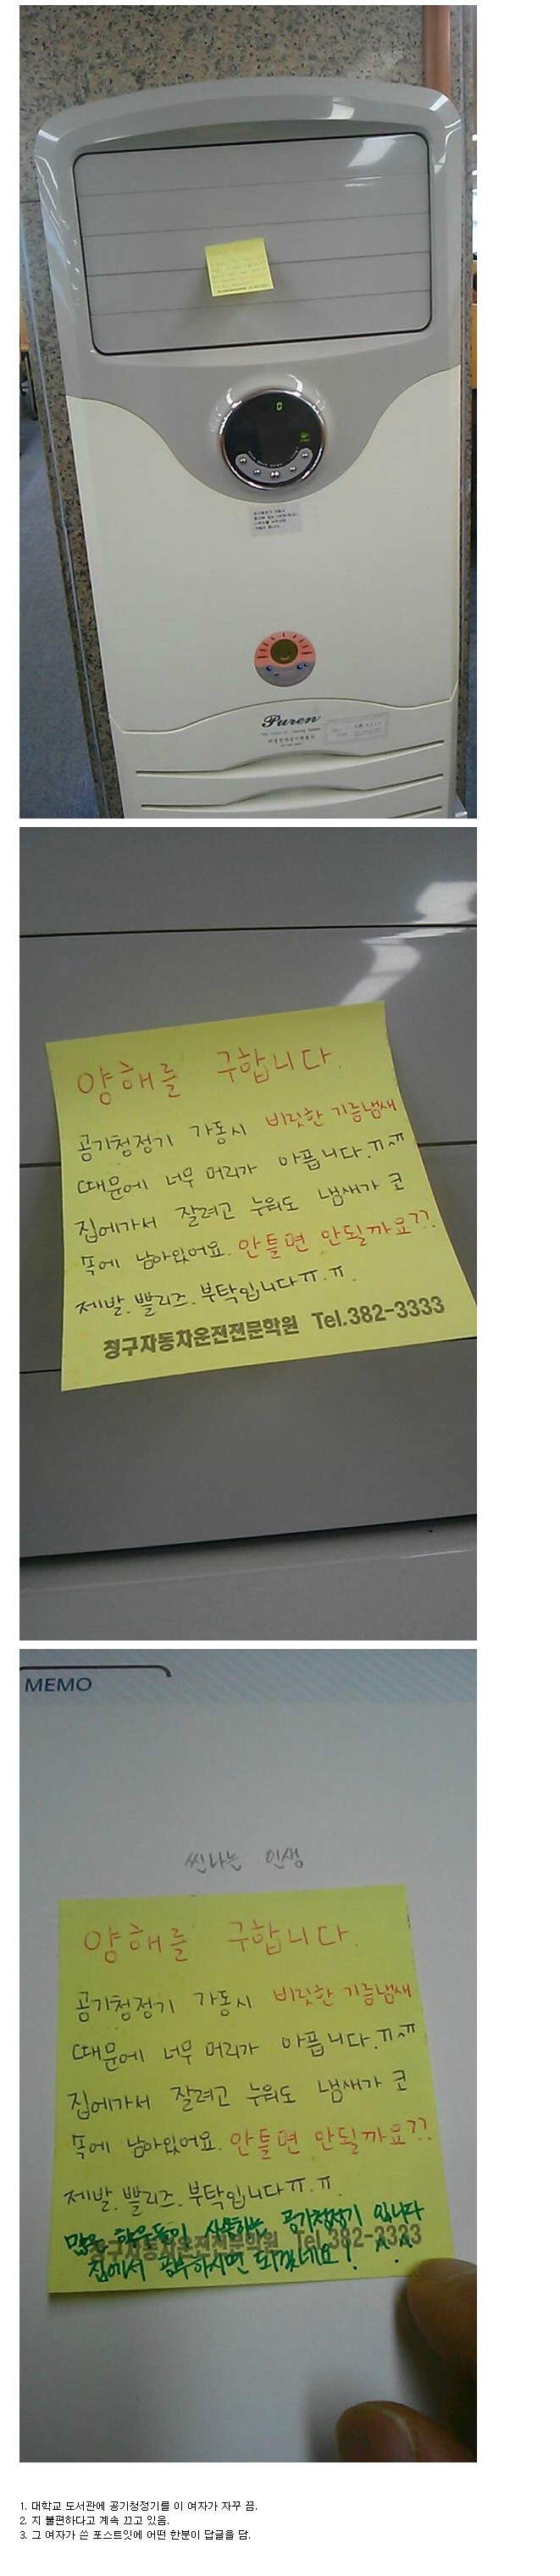 Puren
양해를 구합니다.
공기청정기 가동시 비릿한 기름냄새
때문에 너무 머리가 아픕니다.ㅠㅠ
집에가서 잘려고 누워도 냄새가 코
속에 남아있어요. 안틀면 안될까요??.
제발.쁠리즈.부탁입니다ㅠ.ㅠ.
청구자동차운전전문학원 Tel.382-3333
MEMO
씬나는 인생
양해를 구합니다.
공기청정기 가동시 비릿한 기름냄새
때문에 너무 머리가 아픕니다.ㅠㅠ
집에가서 잘려고 누워도 냄새가 코
속에 남아있어요. 안틀면 안될까요??.
제발.쁠리즈.부탁입니다ㅠ.ㅠ.
많은 학우들이 사용하는 공기청정기 입니다
청구자동차운전전문학원 Tel.382-3333
집에서 공부하시면 되겠네요! ^.^
1. 대학교 도서관에 공기청정기를 이 여자가 자꾸 끔.
2. 지 불편하다고 계속 끄고 있음.
3. 그 여자가 쓴 포스트잇에 어떤 한분이 답글을 담.